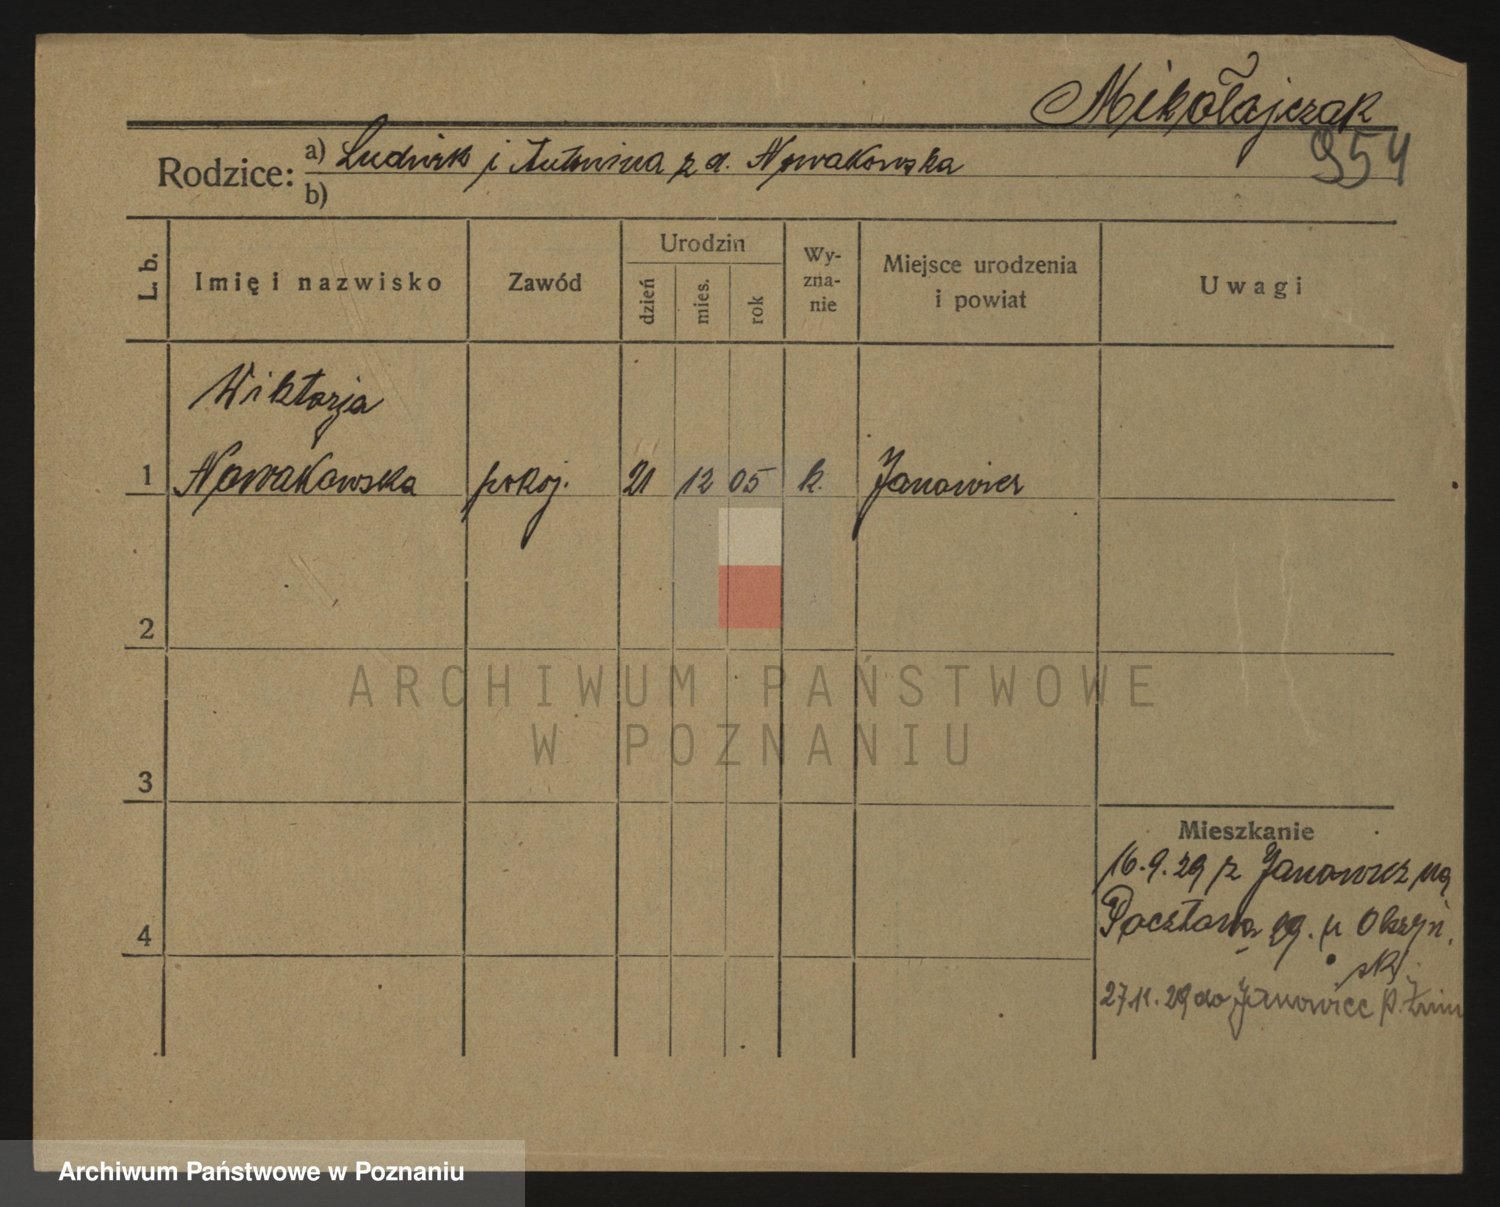 Mikołajczak
954
Rodzice: a) Ludwik i Antonina z d. Nowakowska
b)
L. b. Imię i nazwisko Zawód Urodzin dzień mies. rok Wyznanie Miejsce urodzenia i powiat Uwagi
Wiktorja
1 Nowakowska pokoj. 21 12 05 k. Janowiec
2
ARCHIWUM PAŃSTWOWE
W POZNANIU
3
Mieszkanie
16.9.29 z Janowiec na
Pocztowa 19. u
4
27.11.29 do Janowiec p. Żnin
Archiwum Państwowe w Poznaniu